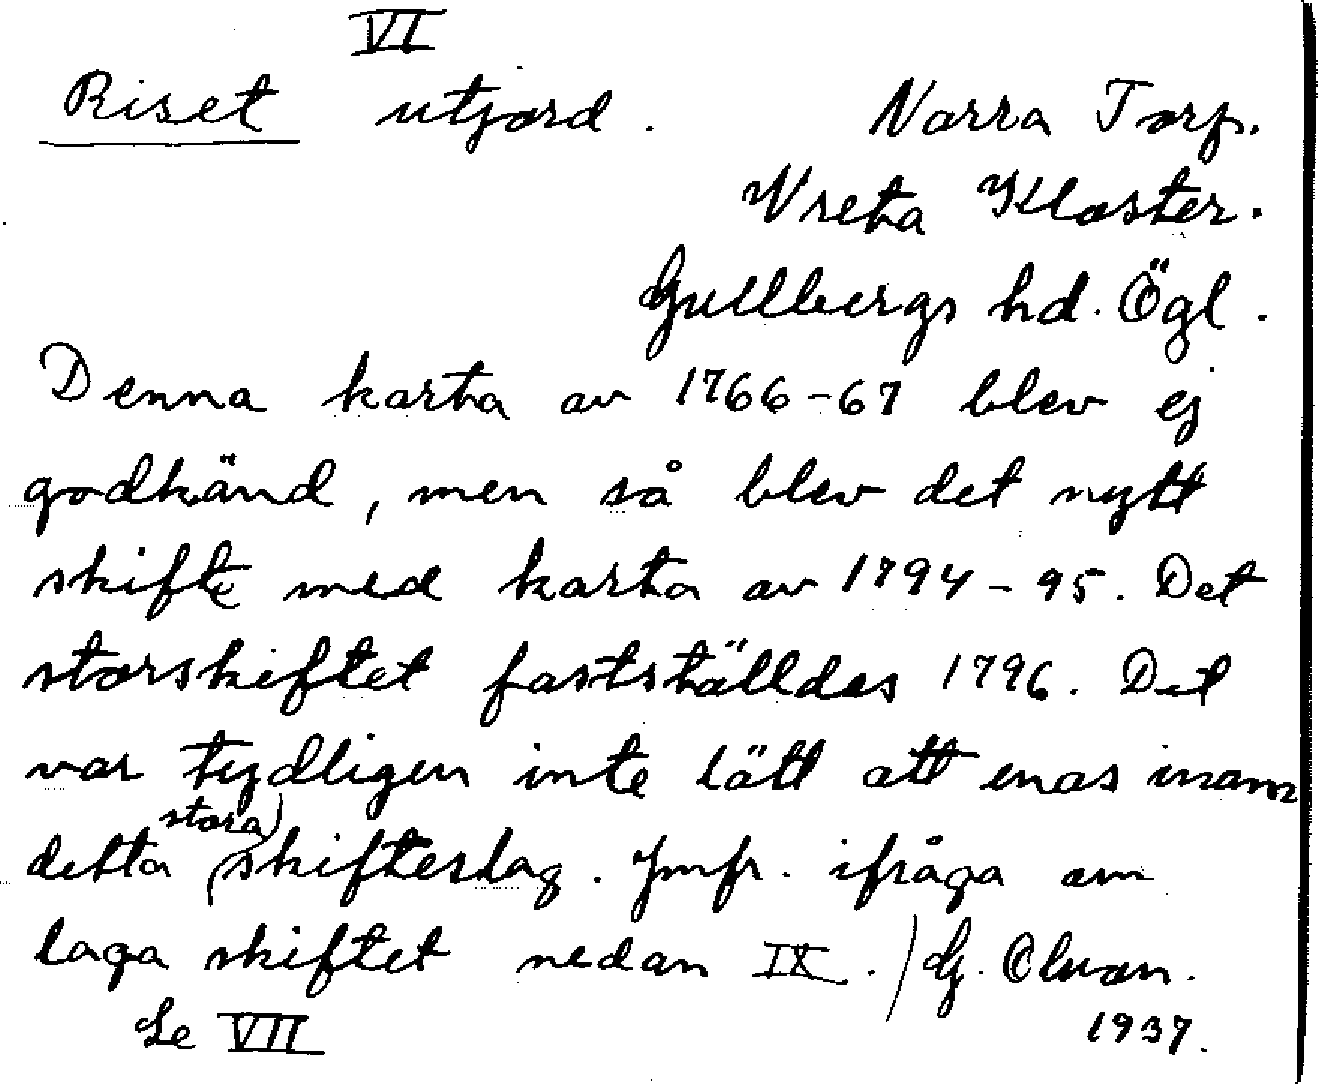 VI
Riset utjord. Norra Torp.
Vreta Kloster.
Gullbergs hd. Ögl.
Denna karta av 1766-67 blev ej
godkänd, men så blev det nytt
skifte med karta av 1794-95. Det
storskiftet fastställdes 1796. Det
var tydligen inte lätt att enas inom
detta stora skifteslag. Jmfr. ifråga om
laga skiftet nedan IX. / G.
Se VII 1937.